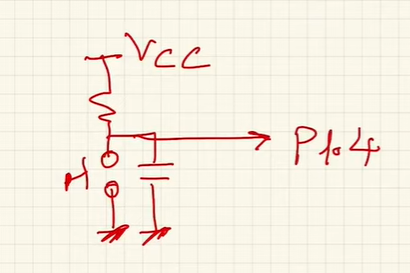 VCC
P1.4